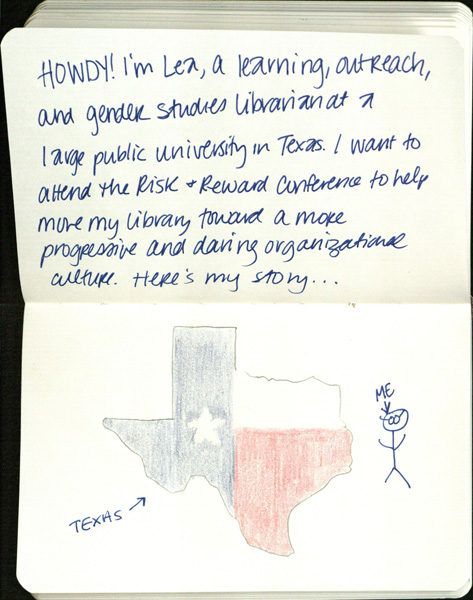 HOWDY! I'm Lea, a learning, outreach,
and gender studies librarian at a
large public university in Texas. I want to
attend the Risk + Reward Conference to help
move my library toward a more
progressive and daring organizational
culture. Here's my story...
ME
TEXAS